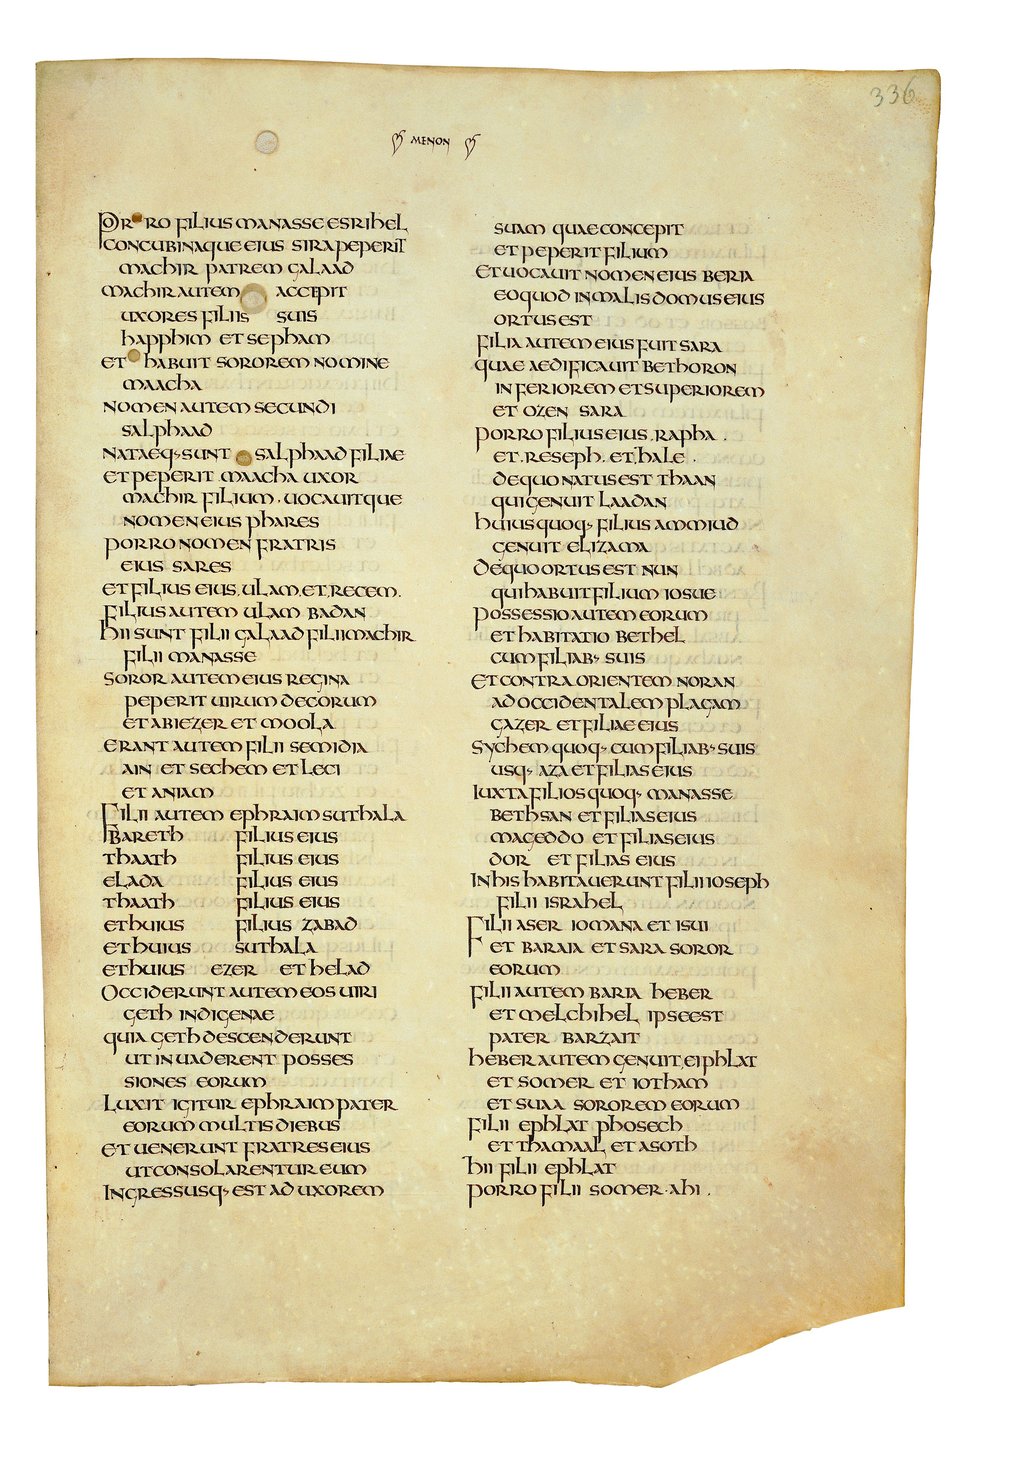 336
MENON
PORRO FILIUS MANASSE ESRIHEL
CONCUBINAQUE EIUS SIRA PEPERIT
MACHIR PATREM GALAAD
MACHIR AUTEM ACCEPIT
UXORES FILIIS SUIS
HAPPHIM ET SEPHAM
ET HABUIT SOROREM NOMINE
MAACHA
NOMEN AUTEM SECUNDI
SALPHAAD
NATAEQ· SUNT SALPHAAD FILIAE
ET PEPERIT MAACHA UXOR
MACHIR FILIUM · UOCAUITQUE
NOMEN EIUS PHARES
PORRO NOMEN FRATRIS
EIUS SARES
ET FILIUS EIUS, ULAM, ET, RECEM.
FILIUS AUTEM ULAM BADAN
HII SUNT FILII GALAAD FILII MACHIR
FILII MANASSE
SOROR AUTEM EIUS REGINA
PEPERIT UIRUM DECORUM
ET ABIEZER ET MOOLA
ERANT AUTEM FILII SEMIDIA
AIN ET SECHEM ET LECI
ET ANIAM
FILII AUTEM EPHRAIM SUTHALA
BARETH FILIUS EIUS
THAATH FILIUS EIUS
ELADA FILIUS EIUS
THAATH FILIUS EIUS
ET HUIUS FILIUS ZABAD
ET HUIUS SUTHALA
ET HUIUS EZER ET HELAD
OCCIDERUNT AUTEM EOS UIRI
GETH INDIGENAE
QUIA GETH DESCENDERUNT
UT INUADERENT POSSES
SIONES EORUM
LUXIT IGITUR EPHRAIM PATER
EORUM MULTIS DIEBUS
ET UENERUNT FRATRES EIUS
UT CONSOLARENTUR EUM
INGRESSUSQ· EST AD UXOREM
SUAM QUAE CONCEPIT
ET PEPERIT FILIUM
ET UOCAUIT NOMEN EIUS BERIA
EO QUOD IN MALIS DOMUS EIUS
ORTUS EST
FILIA AUTEM EIUS FUIT SARA
QUAE AEDIFICAUIT BETHORON
INFERIOREM ET SUPERIOREM
ET OZEN SARA
PORRO FILIUS EIUS · RAPHA ·
ET · RESEPH · ET, HALE ·
DE QUO NATUS EST THAAN
QUI GENUIT LAADAN
HUIUS QUOQ· FILIUS AMMIUD
GENUIT ELIZAMA
DE QUO ORTUS EST NUN
QUI HABUIT FILIUM IOSUE
POSSESSIO AUTEM EORUM
ET HABITATIO BETHEL
CUM FILIAB· SUIS
ET CONTRA ORIENTEM NORAN
AD OCCIDENTALEM PLAGAM
GAZER ET FILIAE EIUS
SYCHEM QUOQ· CUM FILIAB· SUIS
USQ· AZA ET FILIAS EIUS
IUXTA FILIOS QUOQ· MANASSE
BETHSAN ET FILIAS EIUS
MAGEDDO ET FILIAS EIUS
DOR ET FILIAS EIUS
IN HIS HABITAUERUNT FILII IOSEPH
FILII ISRAHEL
FILII ASER IOMANA ET ISUI
ET BARAIA ET SARA SOROR
EORUM
FILII AUTEM BARIA HEBER
ET MELCHIHEL IPSE EST
PATER BARZAIT
HEBER AUTEM GENUIT, EIPHLAT
ET SOMER ET IOTHAM
ET SUAA SOROREM EORUM
FILII EPHLAT PHOSECH
ET THAMAAL ET ASOTH
HII FILII EPHLAT
PORRO FILII SOMER · AHI ·